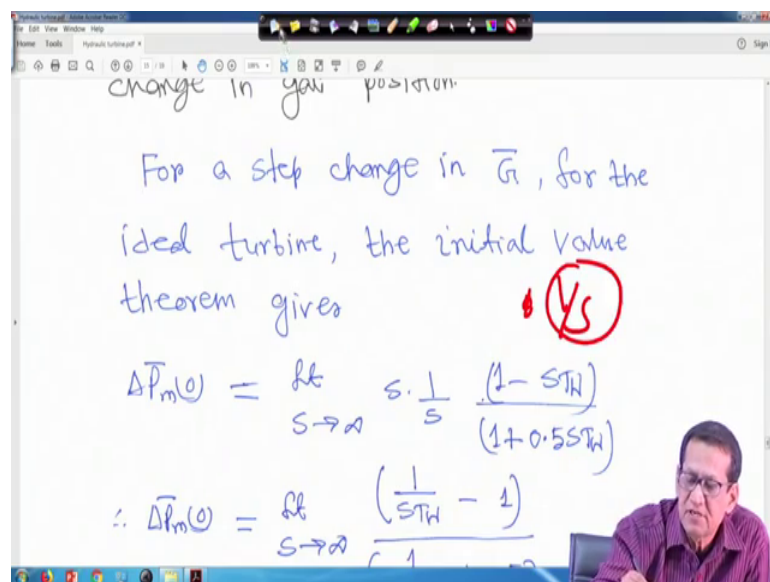 Hydraulic turbine.pdf - Adobe Acrobat Reader DC
File Edit View Window Help
Home Tools Hydraulic turbine.pdf × Sign
change in gate position.
For a step change in G̅, for the
ideal turbine, the initial value
theorem gives
1/s
ΔP̅m(0) = Lt s→∞ s · 1/s (1 - STW)/(1+0.5STW)
∴ ΔP̅m(0) = Lt s→∞ (1/STW - 1)